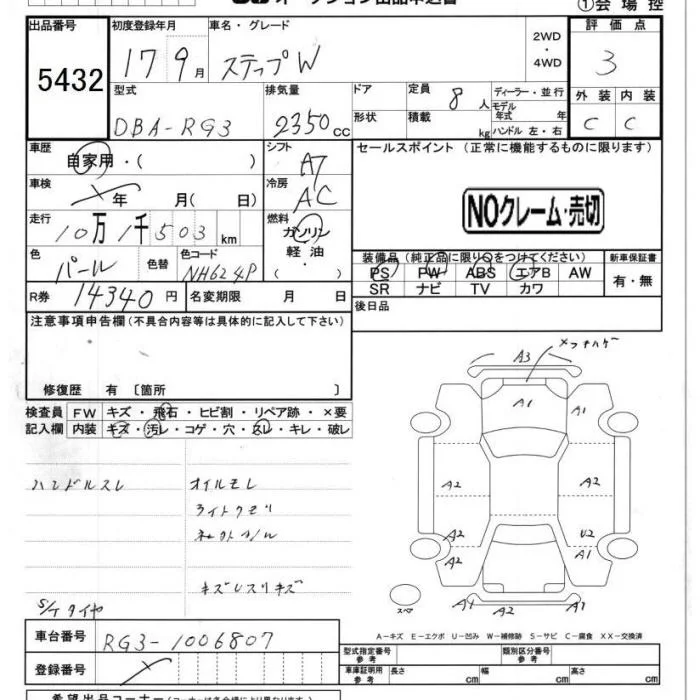 オークション出品申込書
①会場控
出品番号
5432
初度登録年月
17 9月
車名・グレード
ステップW
2WD
・
4WD
評価点
3
外装 内装
C C
型式
DBA-RG3
排気量
2350cc
ドア
形状
定員
8人
積載
kg
ディーラー・並行
モデル年式 年
ハンドル 左・右
車歴
自家用・( )
シフト
A7
セールスポイント (正常に機能するものに限ります)
NOクレーム・売切
車検
年 月( 日)
冷房
AC
走行
10万1千503km
燃料
ガソリン
軽油・
( )
色
パール
色替
色コード
NH624P
装備品(純正品に限り○をつけてください)
新車保証書
PS PW ABS エアB AW
SR ナビ TV カワ
有・無
R券 14340円
名変期限 月 日
後日品
注意事項申告欄(不具合内容等は具体的に記入して下さい)
修復歴 有〔箇所 〕
検査員
記入欄
FW キズ・飛石・ヒビ割・リペア跡・×要
内装 キズ・汚レ・コゲ・穴・スレ・キレ・破レ
ハンドルスレ
オイルモレ
ライトクモリ
S/ケタイヤ
A3
A1
A1
A1
A2
A2
A2
A2
A2
U2
A1
A1
A2
A2
スペア
A-キズ E-エクボ U-凹み W-補修跡 S-サビ C-腐食 XX-交換済
車台番号
RG3-1006807
登録番号
型式指定番号
参考
類別区分番号
参考
車庫証明用
参考
長さ cm 幅 cm 高さ cm
希望出品コーナー